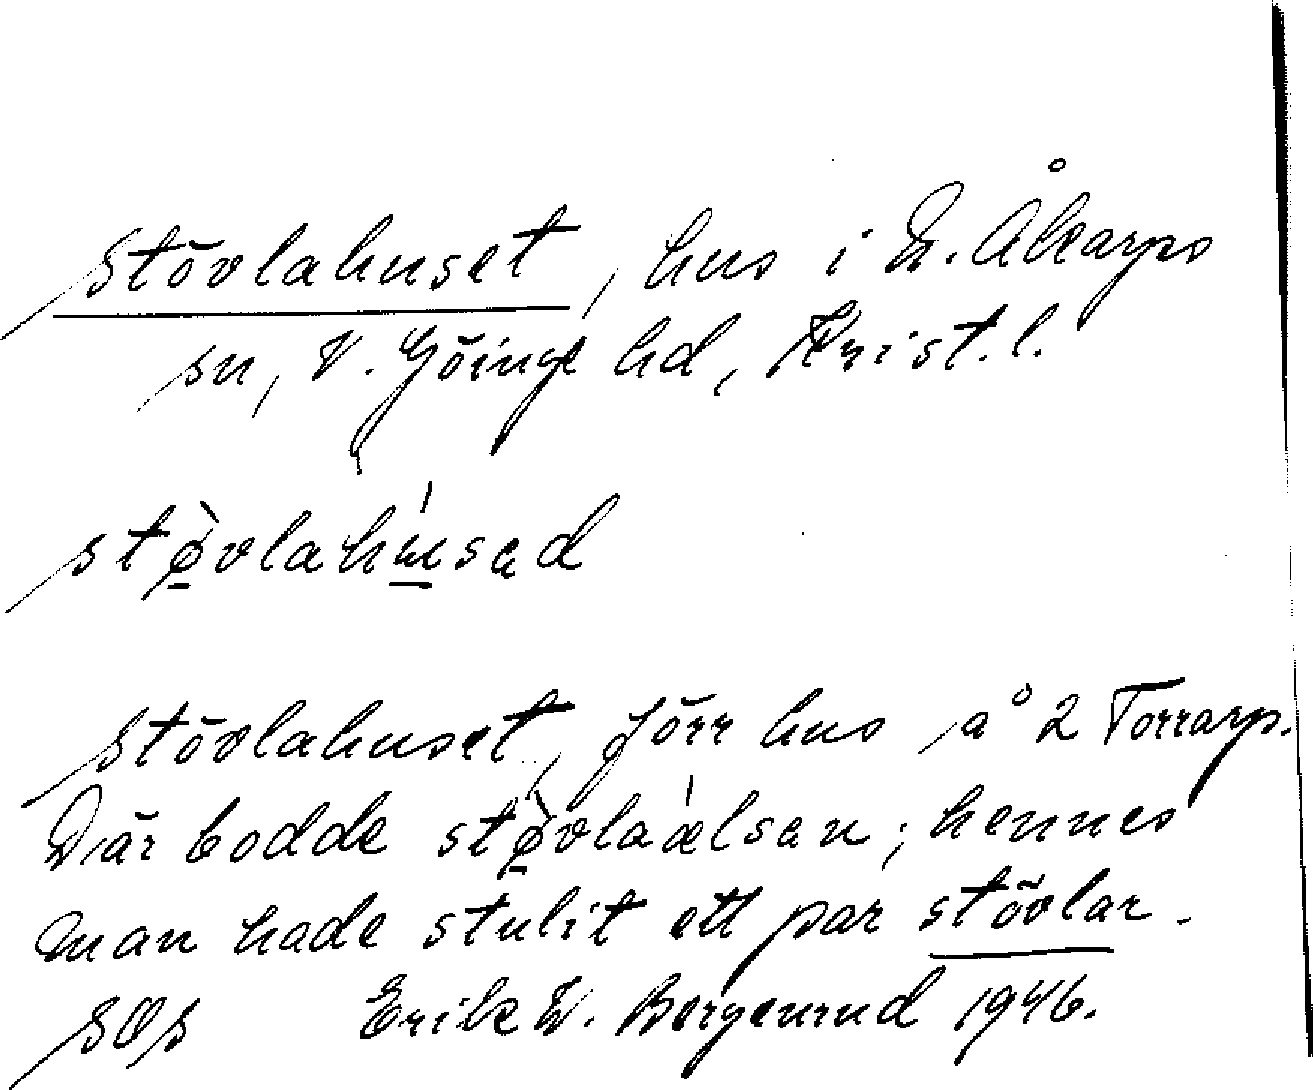 Stövlahuset, hus i N. Åkarps
sn, V. Göinge hd, Krist. l.
stø̀vlahu̇́sad
Stövlahuset, förr hus å 2 Torrarp.
Där bodde stø̀vlaælsan; hennes
man hade stulit ett par stövlar.
SOS Erik W. Bergenrud 1946.